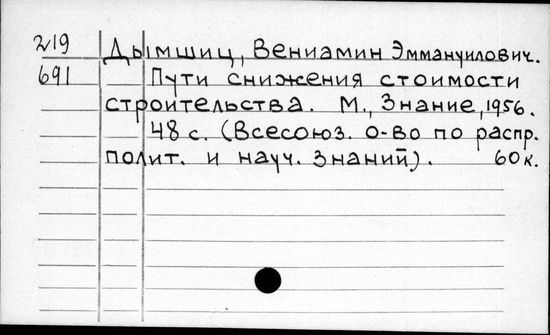 219 Дымшиц, Вениамин Эммануилович.
691 Пути снижения стоимости
строительства. М., Знание, 1956.
48 с. (Всесоюз. о-во по распр.
полит. и науч. знаний). 60 к.